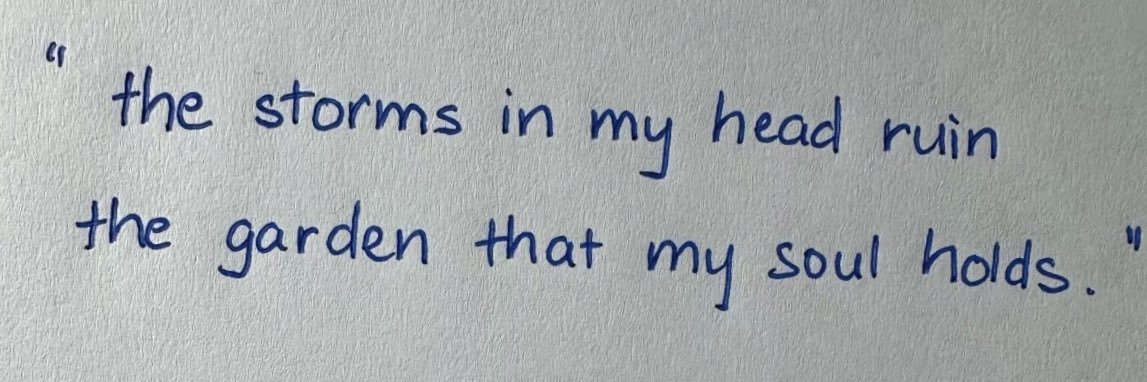 “ the storms in my head ruin
the garden that my soul holds. ”